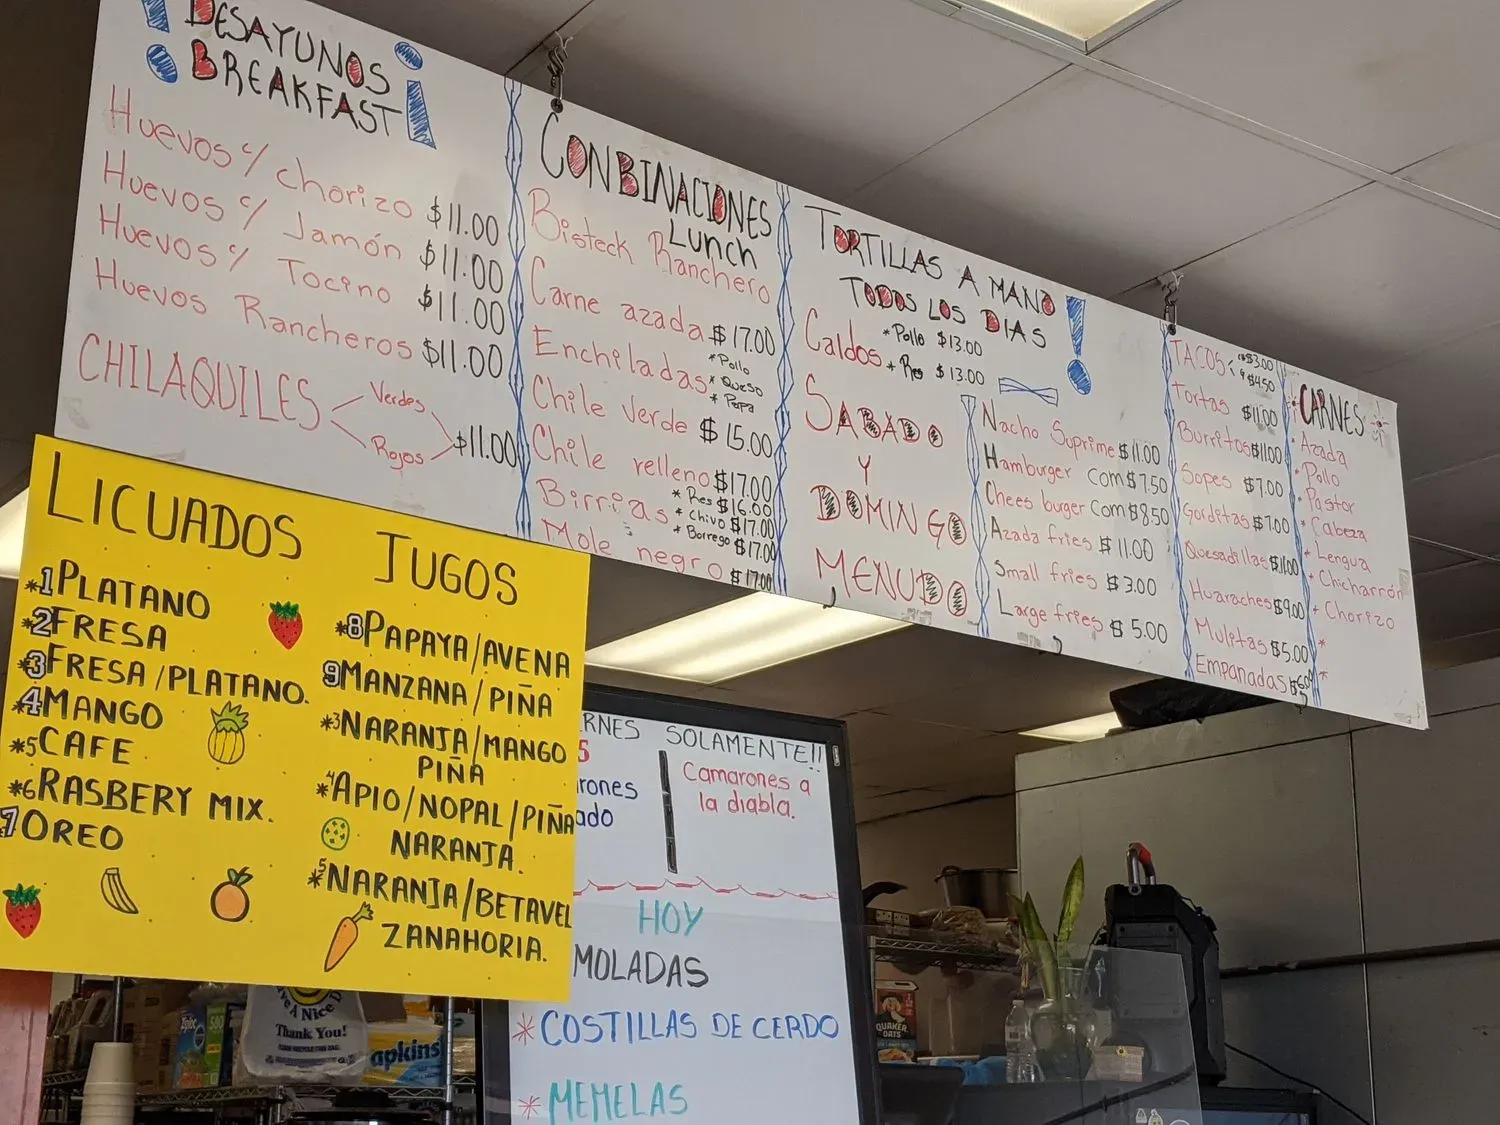 ¡DESAYUNOS
BREAKFAST!
Huevos c/ chorizo $11.00
Huevos c/ Jamón $11.00
Huevos c/ Tocino $11.00
Huevos Rancheros $11.00
CHILAQUILES Verdes
Rojos $11.00
CONBINACIONES
Lunch
Bisteck Ranchero
Carne azada $17.00
Enchiladas * Pollo
* Queso
* Papa
Chile verde $15.00
Chile relleno $17.00
Birrias * Res $16.00
* Chivo $17.00
* Borrego $17.00
Mole negro $17.00
TORTILLAS A MANO
TODOS LOS DIAS !
Caldos * Pollo $13.00
* Res $13.00
SABADO
Y
DOMINGO
MENUDO
Nacho Suprime $11.00
Hamburger Com $7.50
Chees burger Com $8.50
Azada fries $11.00
Small fries $3.00
Large fries $5.00
TACOS $3.00
$4.50
Tortas $11.00
Burritos $11.00
Sopes $7.00
Gorditas $7.00
Quesadillas $11.00
Huaraches $9.00
Mulitas $5.00
Empanadas
CARNES
Azada
Pollo
Pastor
Cabeza
Lengua
Chicharrón
Chorizo
LICUADOS
*1 PLATANO
*2 FRESA
*3 FRESA/PLATANO.
*4 MANGO
*5 CAFE
*6 RASBERY MIX.
*7 OREO
JUGOS
*8 PAPAYA/AVENA
9 MANZANA/PIÑA
*3 NARANJA/MANGO
PIÑA
*4 APIO/NOPAL/PIÑA
NARANJA.
*5 NARANJA/BETAVEL
ZANAHORIA.
RNES SOLAMENTE!!
Camarones a
la diabla.
rones
ado
HOY
MOLADAS
* COSTILLAS DE CERDO
* MEMELAS
ve A Nice
Thank You!
apkins
Ziploc
580
QUAKER
OATS